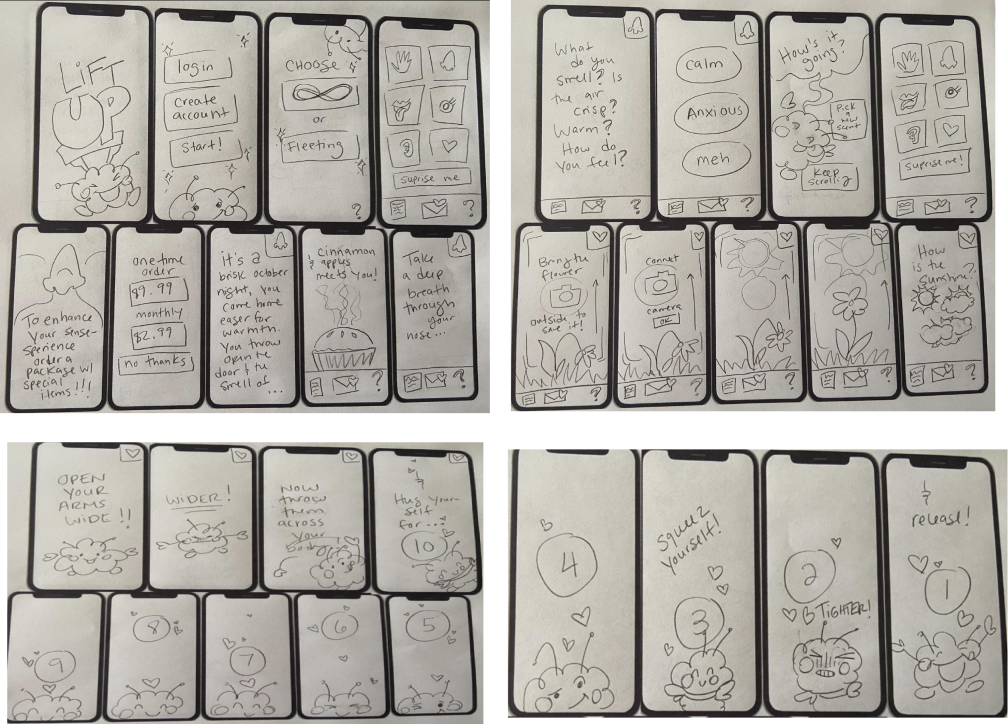 LiFT
UP
login
Create
account
Start!
CHOOSE
or
Fleeting
?
suprise me
?
To enhance
your sense-
sperience
order a
package w/
special
items!!!
onetime
order
$9.99
monthly
$2.99
no thanks
it's a
brisk october
night, you
come home
easer for
warmth.
You throw
open the
door & the
smell of
...
Cinnamon
& apples
meets you!
?
Take
a deep
breath
through
your
nose...
?
What
do you
smell? Is
the air
crisp?
Warm?
How do
you feel?
?
calm
Anxious
meh
?
How's it
going?
Pick
a
new
scent
Keep
scrolling
suprise me!
?
Bring the
flower
outside to
save it!
?
connet
camera
OK
?
?
?
How
is the
sunshine?
?
OPEN
YOUR
ARMS
WIDE!!
WIDER!
NOW
throw
them
across
your
body!
&
Hug your-
self
for...
10
9
8
7
6
5
4
squeez
yourself!
3
2
TIGHTER!
&
release!
1